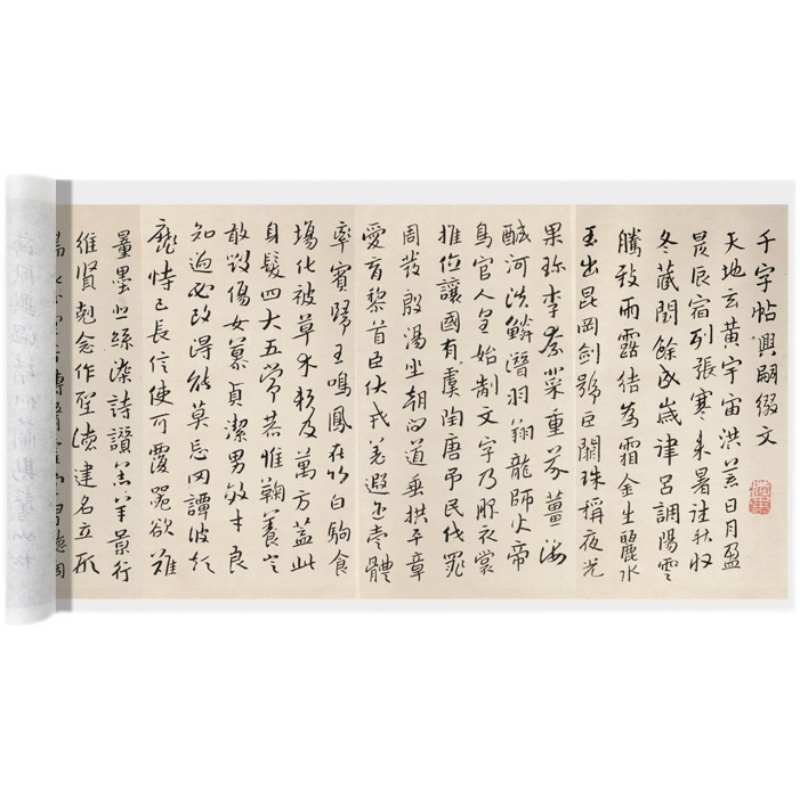 千字帖興嗣綴文
天地玄黃宇宙洪荒日月盈
昃辰宿列張寒來暑往秋收
冬藏閏餘成歲律呂調陽雲
騰致雨露結為霜金生麗水
玉出昆岡劍號巨闕珠稱夜光
果珍李柰菜重芥薑海
鹹河淡鱗潛羽翔龍師火帝
鳥官人皇始制文字乃服衣裳
推位讓國有虞陶唐弔民伐罪
周發殷湯坐朝問道垂拱平章
愛育黎首臣伏戎羌遐邇壹體
率賓歸王鳴鳳在竹白駒食
場化被草木賴及萬方蓋此
身髮四大五常恭惟鞠養豈
敢毀傷女慕貞潔男效才良
知過必改得能莫忘罔譚彼短
靡恃己長信使可覆器欲難
量墨悲絲染詩讚羔羊景行
維賢剋念作聖德建名立形